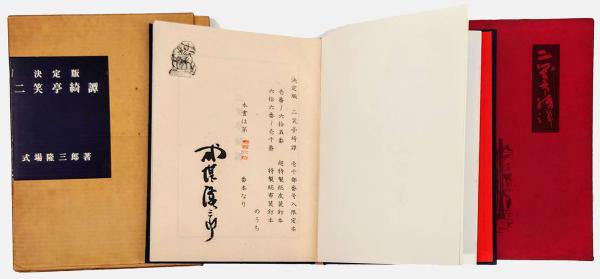 決定版
二笑亭綺譚
式場隆三郎著
決定版 二笑亭綺譚 壱千部番号入限定本
壱番ー六拾五番 超特製総皮装釘本
六拾六番ー壱千番 特製総布装釘本
のうち
本書は第
番本なり
式場隆三郎
二笑亭綺譚